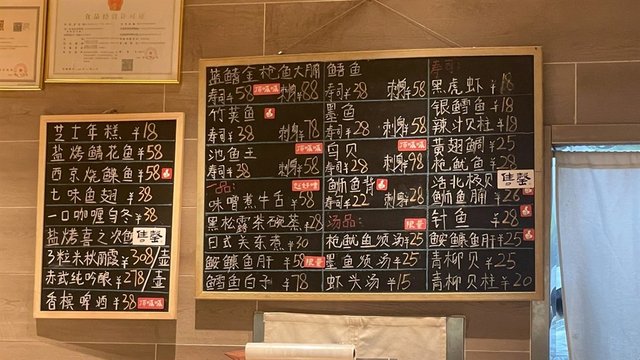 食品经营许可证
芝士年糕 ¥18
盐烤鲭花鱼 ¥58
西京烧鲽鱼 ¥58
七味鱼翅 ¥38
一口咖喱白冬 ¥38
盐烤喜之次鱼 售罄
3粒米秋丽露 ¥308/壶
赤武纯吟酿 ¥278/壶
香槟啤酒 ¥38 顶呱呱
蓝鳍金枪鱼大腩
寿司¥58 顶呱呱 刺身¥88
竹荚鱼
寿司¥38 刺身¥78
池鱼王 顶呱呱
寿司¥38 刺身¥58
一品:
味噌煮牛舌 ¥58
黑松露茶碗蒸 ¥28
日式关东煮 ¥30
鮟鱇鱼肝 ¥58 限量
鳕鱼白子 ¥78
鲭鱼
寿司¥38 刺身¥58
墨鱼
寿司¥28 刺身¥58
白贝 顶呱呱
寿司¥28 刺身¥98
鰤鱼背
寿司¥22 刺身¥28
汤品: 限量
枪鱿鱼烦汤 ¥25
墨鱼烦汤 ¥25
虾头汤 ¥15
寿司:
黑虎虾 ¥18
银鳕鱼 ¥18
辣汁贝柱 ¥18
黄翅鲷 ¥25
枪鱿鱼 ¥28
活北极贝 售罄
鰤鱼腩 ¥26
针鱼 ¥28
鮟鱇鱼肝 ¥25
青柳贝 ¥25
青柳贝柱 ¥20